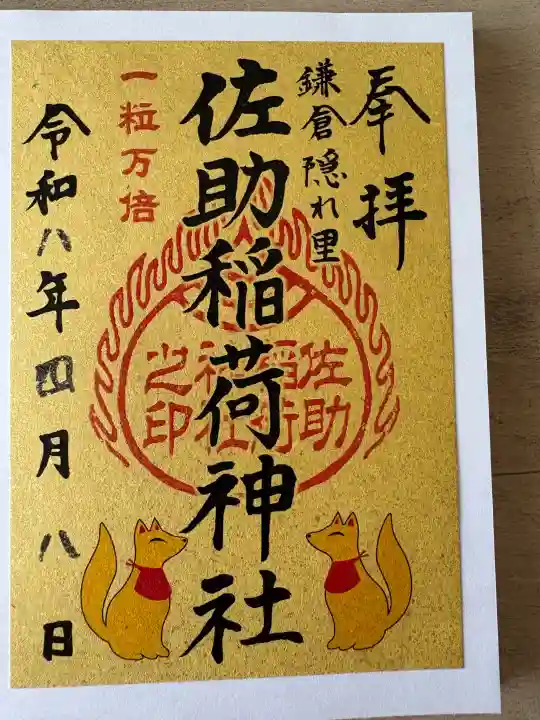 奉拝
鎌倉隠れ里
佐助稲荷神社
佐助
稲荷
神社
之印
一粒万倍
令和八年四月八日